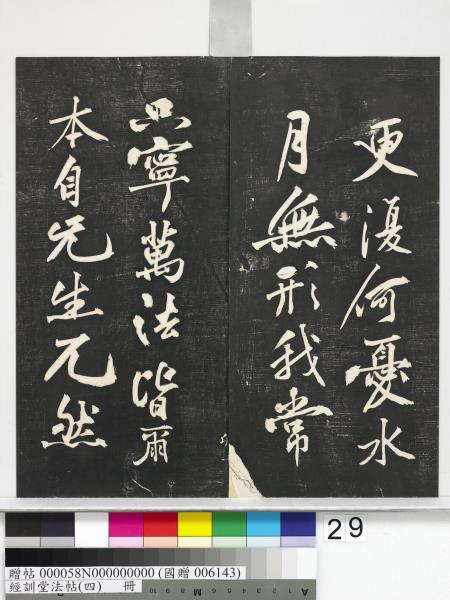 更復何憂水
月無形我常
只寧萬法皆爾
本自无生兀然
29
贈帖 000058N000000000 (國贈 006143)
經訓堂法帖(四) 冊